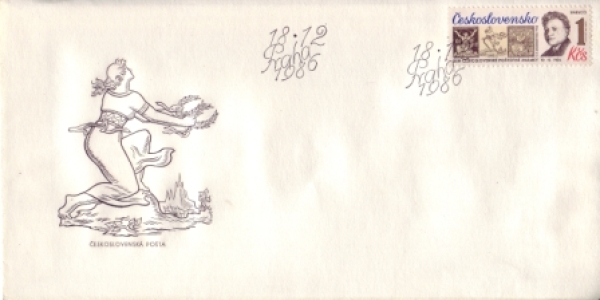 18.12
Praha
1986
18.12
Praha
1986
Československo
1
Kčs
ČESKOSLOVENSKÁ POŠTA